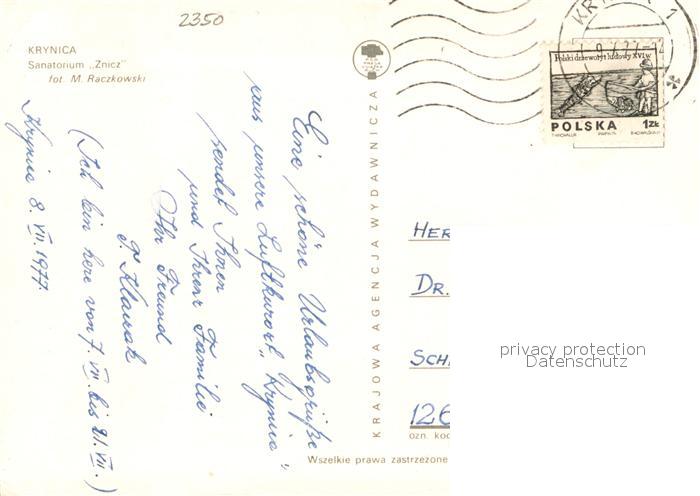 2350
KRYNICA
Sanatorium „Znicz”
fot. M. Raczkowski
Eine schöne Urlaubsgrüße
aus unsere Luftkurort „Krynica"
sendet Ihnen
und Ihrer Familie
Ihr Freund
(Ich bin here von 7. VII. bis 21. VII.)
Krynica 8. VII. 1977.
KRAJOWA AGENCJA WYDAWNICZA
Polski drzeworyt ludowy XVI w.
POLSKA 1 ZŁ
HER
DR.
SCH
126
ozn. kod
Wszelkie prawa zastrzeżone
privacy protection
Datenschutz